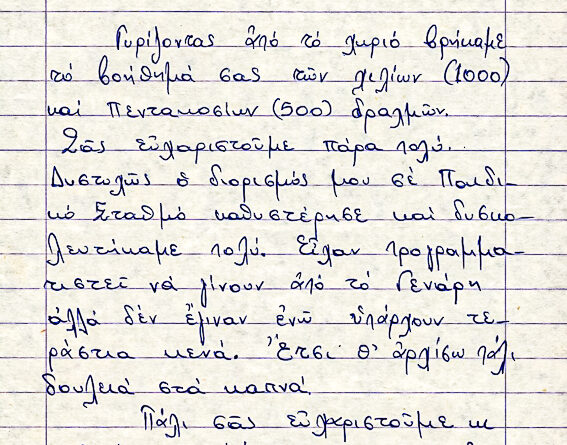 Γυρίζοντας ἀπό τό χωριό βρήκαμε
τό βοήθημά σας τῶν χιλίων (1000)
καί πεντακοσίων (500) δραχμῶν.
Σᾶς εὐχαριστοῦμε πάρα πολύ.
Δυστυχῶς ὁ διορισμός μου σέ Παιδι-
κό Σταθμό καθυστέρησε καί δυσκο-
λευτήκαμε πολύ. Εἶχαν προγραμμα-
τιστεῖ νά γίνουν ἀπό τό Γενάρη
ἀλλά δέν ἔγιναν ἐνῶ ὑπάρχουν τε-
ράστια κενά. Ἔτσι θ' ἀρχίσω πάλι
δουλειά στά καπνά.
Πάλι σᾶς εὐχαριστοῦμε κ